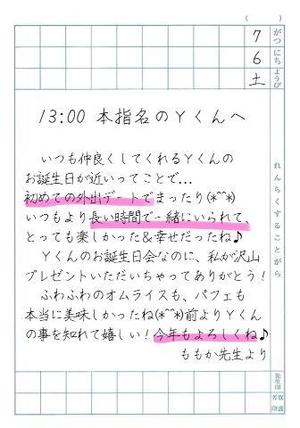 ( )
がつ 7
にち 6
ようび 土
れんらくすることがら
13:00 本指名のYくんへ
いつも仲良くしてくれるYくんの
お誕生日が近いってことで...
初めての外出デートでまったり(*^^*)
いつもより長い時間で一緒にいられて、
とっても楽しかった&幸せだったね♪
Yくんのお誕生日会なのに、私が沢山
プレゼントいただいちゃってありがとう!
ふわふわのオムライスも、パフェも
本当に美味しかったね(*^^*)前よりYくん
の事を知れて嬉しい!今年もよろしくね♪
ももか先生より
先生印